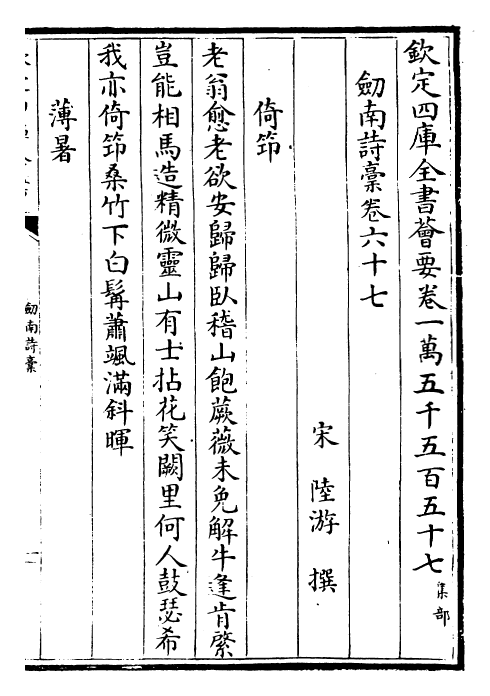 欽定四庫全書薈要卷一萬五千五百五十七集部
劒南詩稾卷六十七
宋 陸游 撰
倚筇
老翁愈老欲安歸歸臥稽山飽蕨薇未免解牛逢肯綮
豈能相馬造精微靈山有士拈花笑闕里何人鼓瑟希
我亦倚筇桑竹下白髯蕭颯滿斜暉
薄暑
劒南詩稾
一